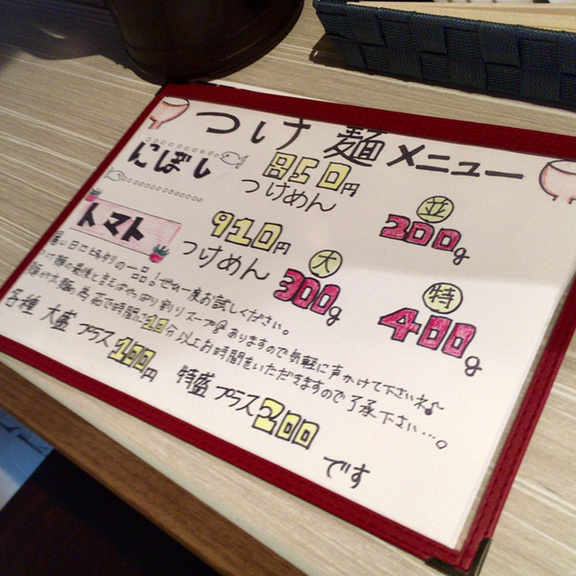 つけ麺メニュー
にぼし
850円
つけめん
並
200g
トマト
910円
つけめん
大
300g
特
400g
暑い日にピッタリの一品！ぜひ一度お試しください。
つけ麺の最後とまたはやっぱり割りスープ@ありますので気軽に声かけて下さいネ♪
麺が太麺の為茹で時間に10分以上お時間をいただきますので了承下さい…。
各種 大盛プラス100円
特盛プラス200
です